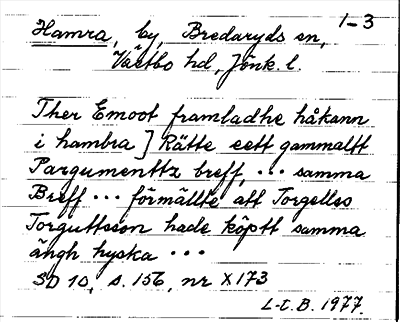 1-3
Hamra, by, Bredaryds sn,
Västbo hd, Jönk. l.
Ther Emoot framladhe håkann
i hambra] Rätte eett gammaltt
Pargumenttz breff, ... samma
Breff ... förmällte att Torgellss
Torguttsson hade köptt samma
ängh hyska ...
SD 10, s. 156, nr X173
L-E. B. 1977.